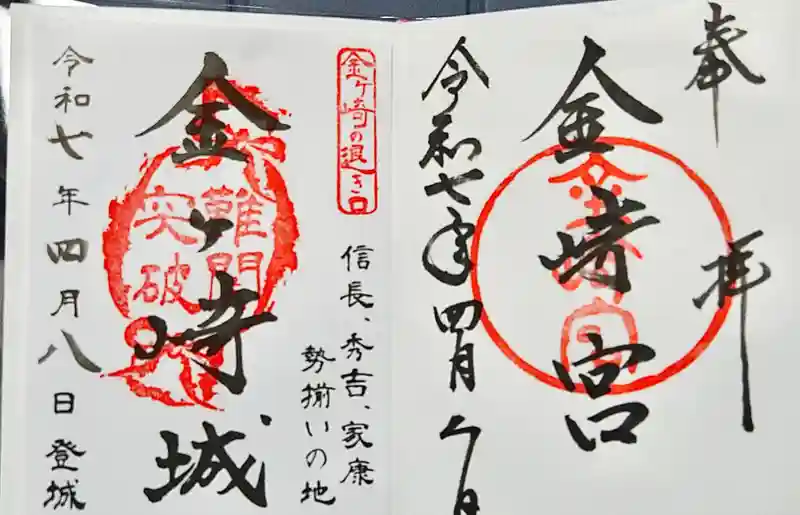 奉拝
金崎宮
金崎宮
令和七年四月八日
金ヶ崎の退き口
信長、秀吉、家康
勢揃いの地
金ヶ崎城
難関
突破
令和七年四月八日登城